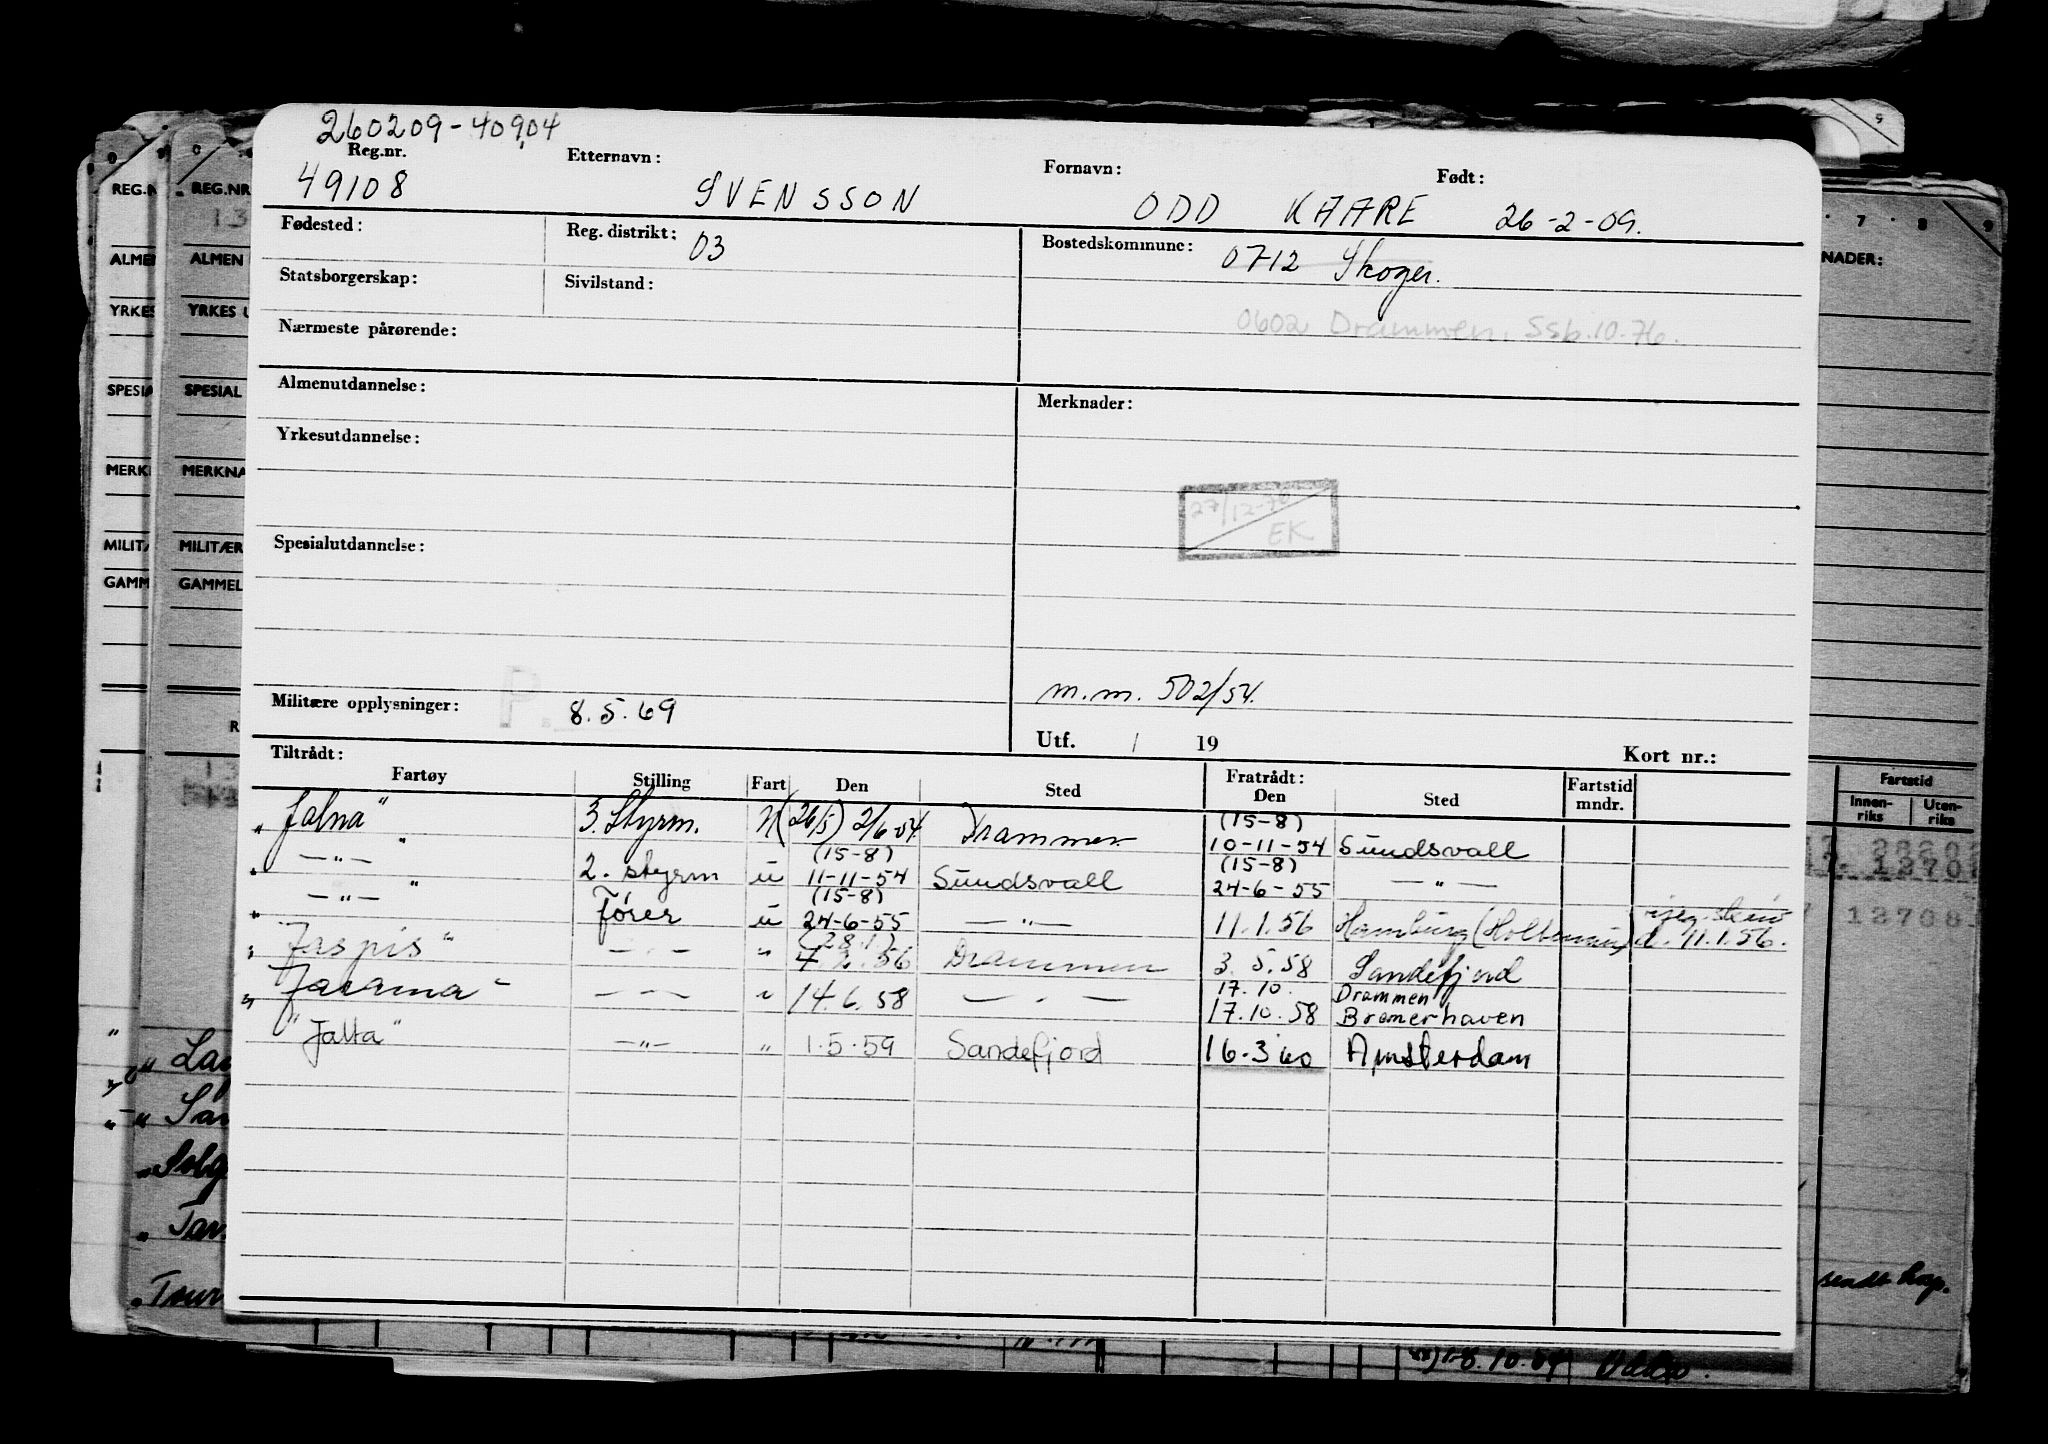 260209-40904
Reg.nr. Etternavn: Fornavn: Født:
49108 SVENSSON ODD KAARE 26-2-09.
Fødested: Reg. distrikt: 03 Bostedskommune: 0712 Skoger.
Statsborgerskap: Sivilstand:
0602 Drammen. SSb.10.76.
Nærmeste pårørende:
Almenutdannelse: Merknader:
Yrkesutdannelse:
27/12-76
EK
Spesialutdannelse:
m.m. 502/54.
Militære opplysninger: P. 8.5.69
Utf. / 19 Kort nr.:
Tiltrådt: Fratrådt:
Fartøy Stilling Fart Den Sted Den Sted Fartstid mndr.
"Jalna" 3. Styrm. (26/5) 2/6-54. Drammen (15-8) 10-11-54 Sundsvall
" —"— " 2. styrm u (15-8) 11-11-54 Sundsvall (15-8) 24-6-55 —"—
" —"— " fører u (15-8) 24-6-55 —"— 11.1.56 Hamburg d. 11.1.56.
"Jaspis" —"— " (28.1) 4.2.56 Drammen 3.5.58 Sandefjord
"Jarama" —"— " 14.6.58 —"— 17.10. Drammen
17.10.58 Bremerhaven
"Jalta" —"— " 1.5.59 Sandefjord 16.3.60 Amsterdam
REG.NR
ALMEN
YRKES
SPESIAL
MERKNA
MILITÆR
GAMMEL
NADER:
7 8 9
Fartstid
Innenriks Utenriks